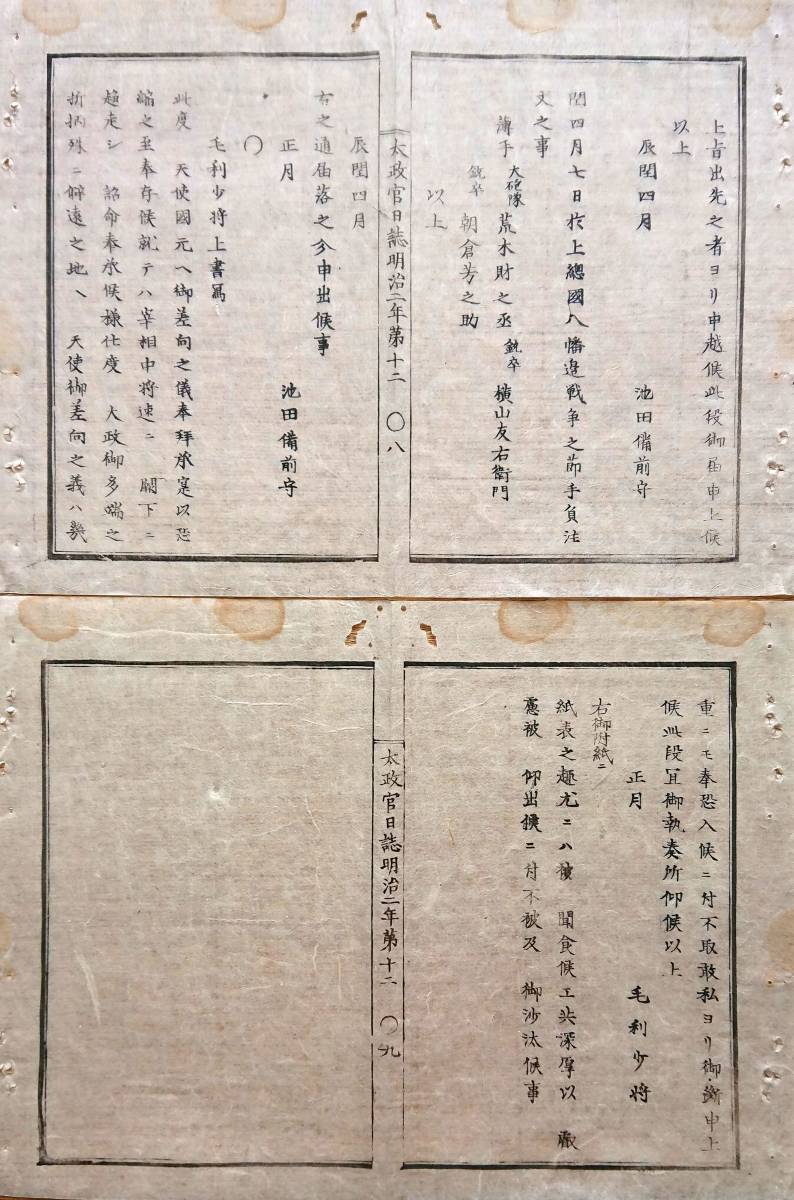 上旨出先之者ヨリ申越候此段御届申上候
以上
辰閏四月 池田備前守
閏四月七日於上總國八幡邊戦争之節手負注
文之事
薄手 大砲隊 荒木財之丞 銃卒 横山友右衛門
銃卒 朝倉芳之助
以上
辰閏四月
右之通届落之分申出候事
正月 池田備前守
〇
毛利少将上書冩
此度 天使國元ヘ御差向之儀奉拜承寔以恐
縮之至奉存候就テハ宰相中将速ニ 闕下ニ
趨走シ 詔命奉承候様仕度 大政御多端之
折柄殊ニ僻遠之地ヘ 天使御差向之義ハ幾
太政官日誌明治二年第十二 〇八
重ニモ奉恐入候ニ付不取敢私ヨリ御斷申上
候此段冝御執奏所仰候以上
正月 毛利少将
右御附紙ニ
紙表之趣尤ニハ被 聞食候エ共深厚以 叡
慮被 仰出候ニ付不被及 御沙汰候事
太政官日誌明治二年第十二 〇九